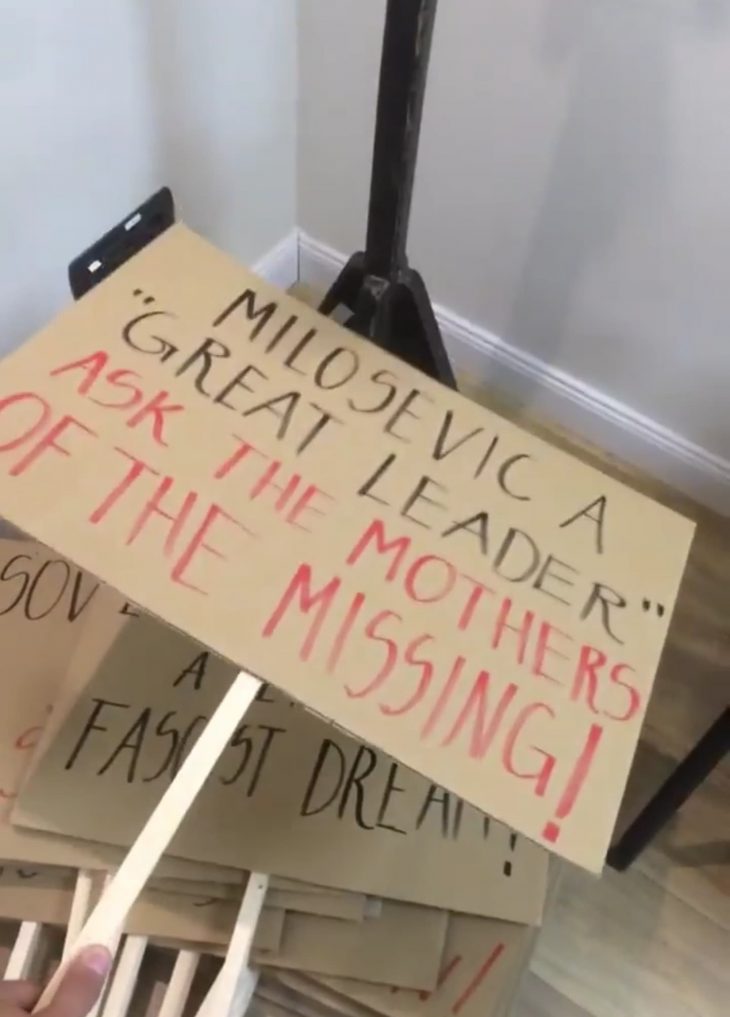 MILOSEVIC A
"GREAT LEADER"
ASK THE MOTHERS
OF THE MISSING!
SOV
A
FASCIST DREAM!